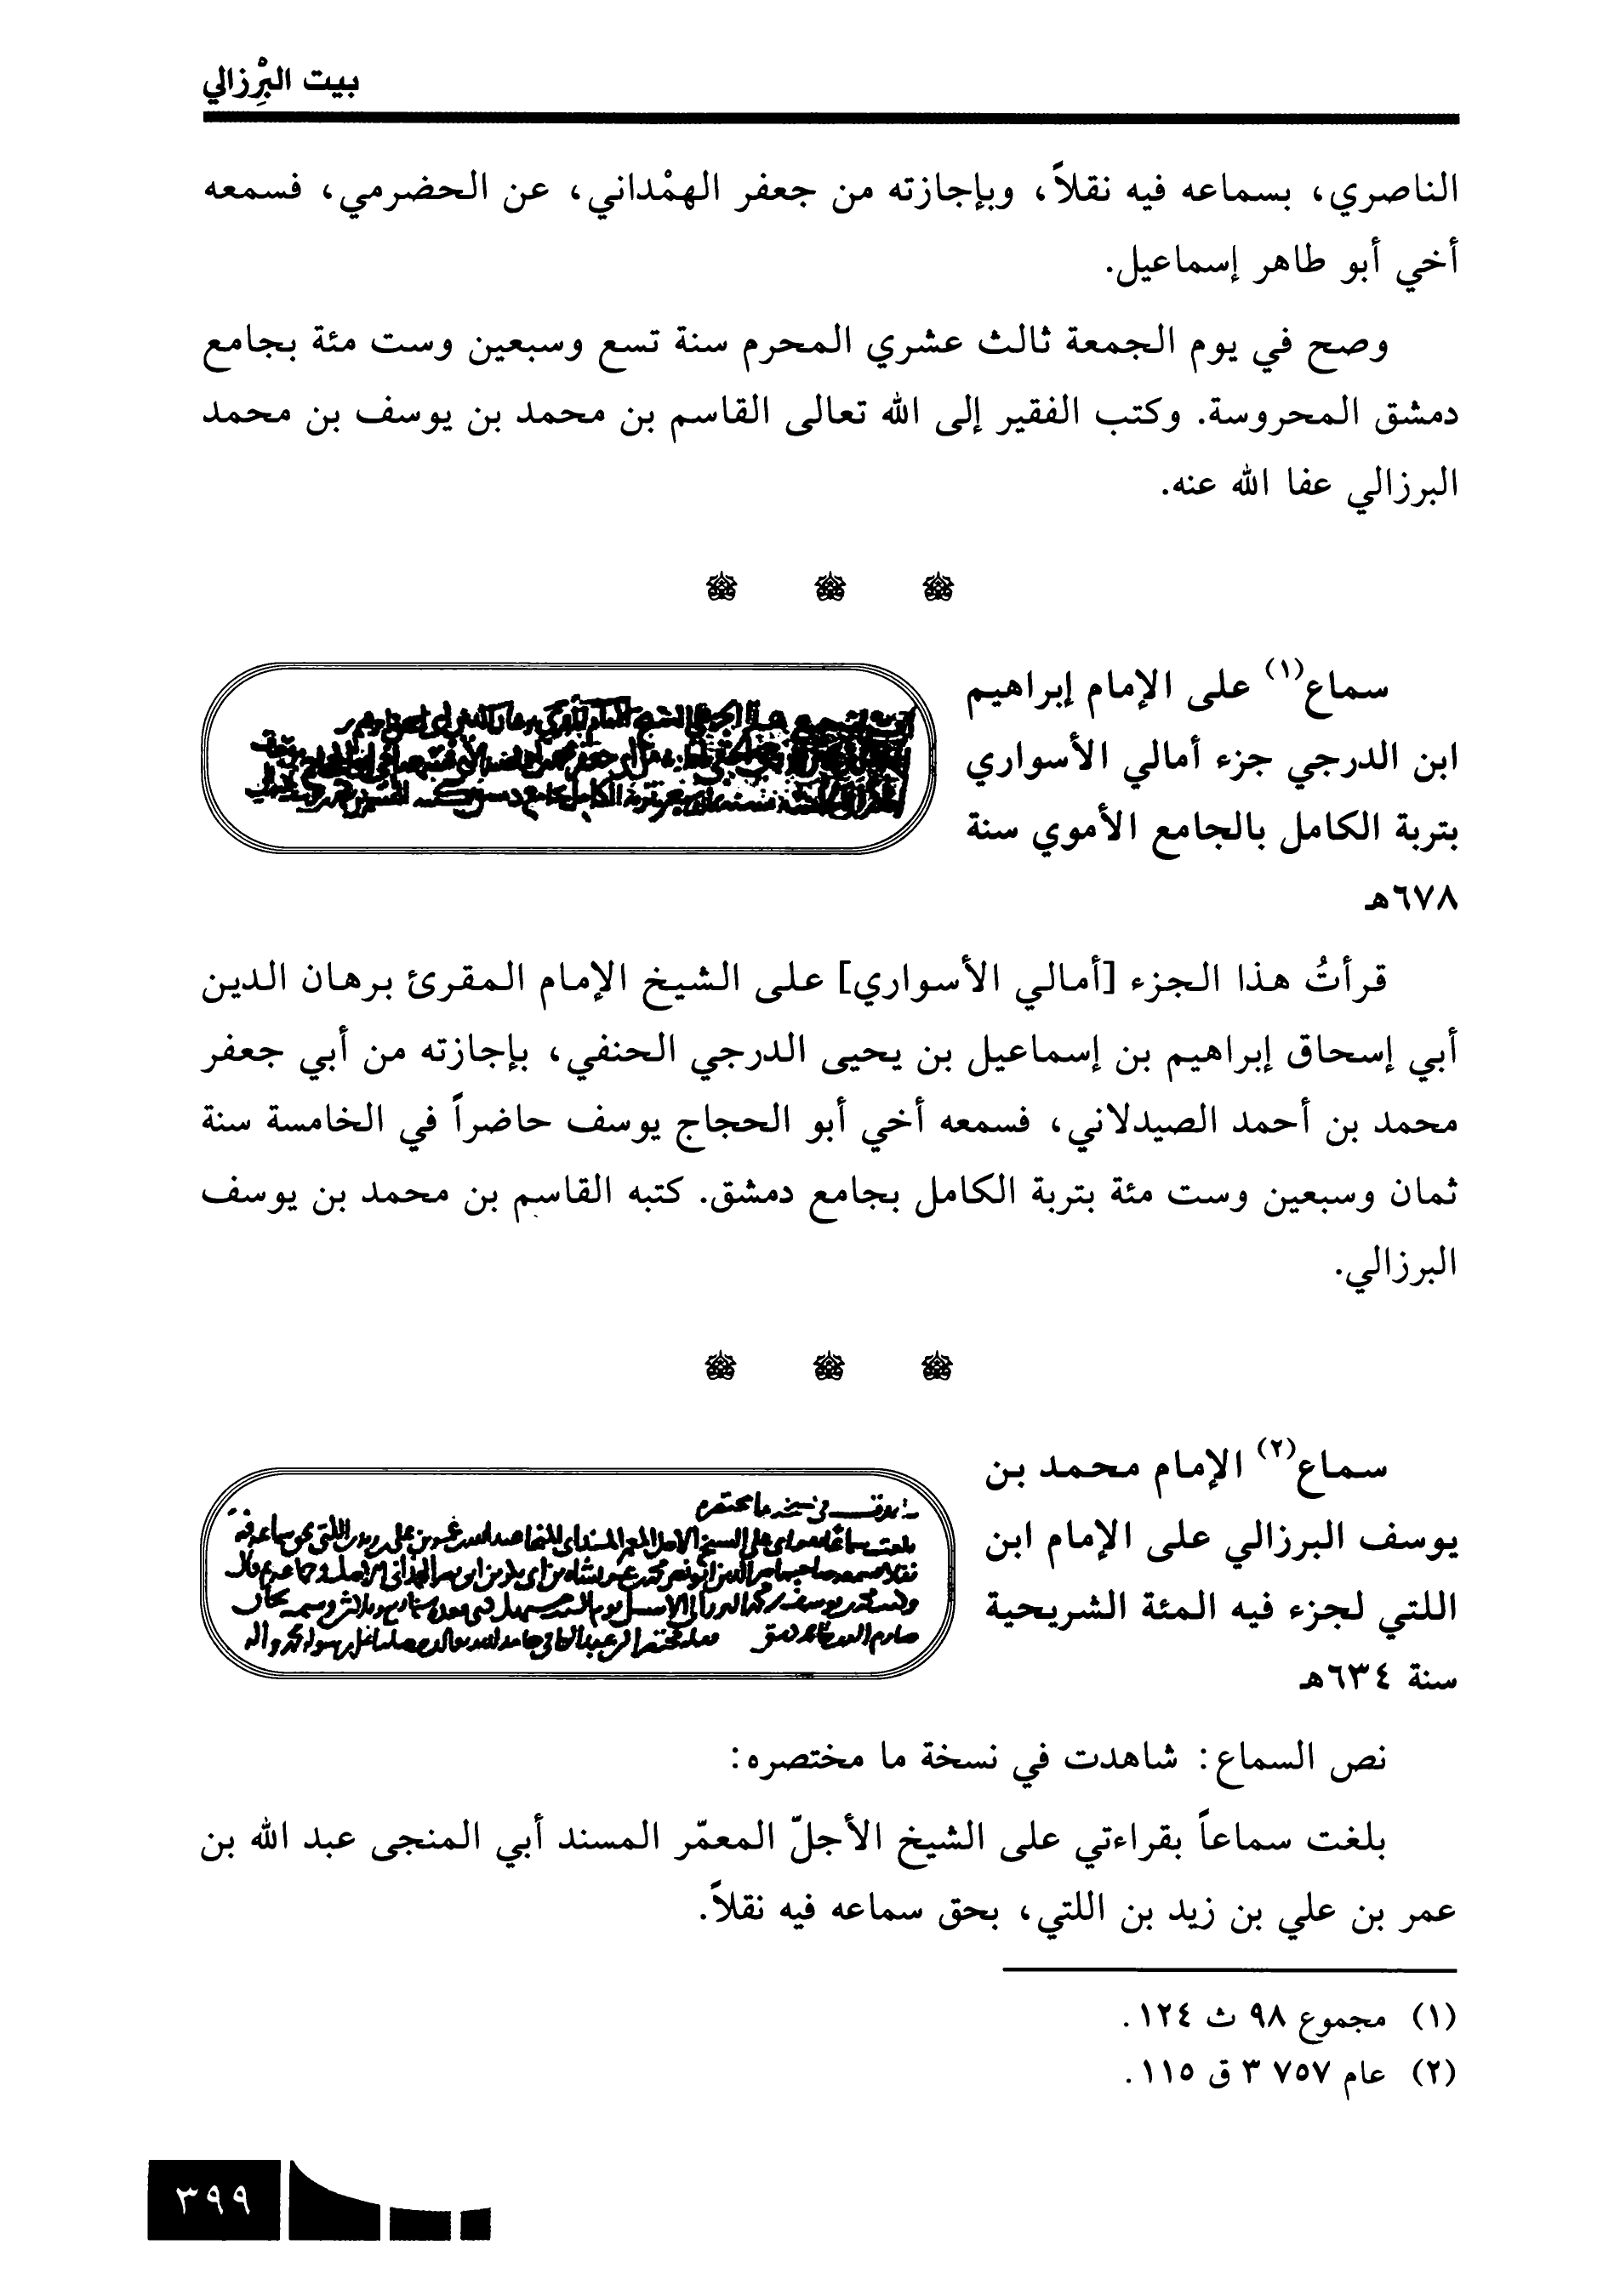 بيت البِرْزالي
الناصري، بسماعه فيه نقلاً، وبإجازته من جعفر الهمْداني، عن الحضرمي، فسمعه
أخي أبو طاهر إسماعيل.
وصح في يوم الجمعة ثالث عشري المحرم سنة تسع وسبعين وست مئة بجامع
دمشق المحروسة. وكتب الفقير إلى الله تعالى القاسم بن محمد بن يوسف بن محمد
البرزالي عفا الله عنه.
سماع(١) على الإمام إبراهيم
ابن الدرجي جزء أمالي الأسواري
بتربة الكامل بالجامع الأموي سنة
٦٧٨هـ
قرأتُ هذا الجزء [أمالي الأسواري] على الشيخ الإمام المقرئ برهان الدين
أبي إسحاق إبراهيم بن إسماعيل بن يحيى الدرجي الحنفي، بإجازته من أبي جعفر
محمد بن أحمد الصيدلاني، فسمعه أخي أبو الحجاج يوسف حاضراً في الخامسة سنة
ثمان وسبعين وست مئة بتربة الكامل بجامع دمشق. كتبه القاسم بن محمد بن يوسف
البرزالي.
سماع(٢) الإمام محمد بن
يوسف البرزالي على الإمام ابن
اللتي لجزء فيه المئة الشريحية
سنة ٦٣٤هـ
نص السماع: شاهدت في نسخة ما مختصره:
بلغت سماعاً بقراءتي على الشيخ الأجلّ المعمّر المسند أبي المنجى عبد الله بن
عمر بن علي بن زيد بن اللتي، بحق سماعه فيه نقلاً.
(١) مجموع ٩٨ ث ١٢٤.
(٢) عام ٧٥٧ ٣ ق ١١٥.
٣٩٩